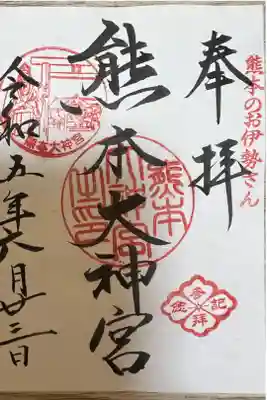 熊本のお伊勢さん
奉拝
参拝記念
熊本大神宮
熊本大神宮
令和五年六月廿三日